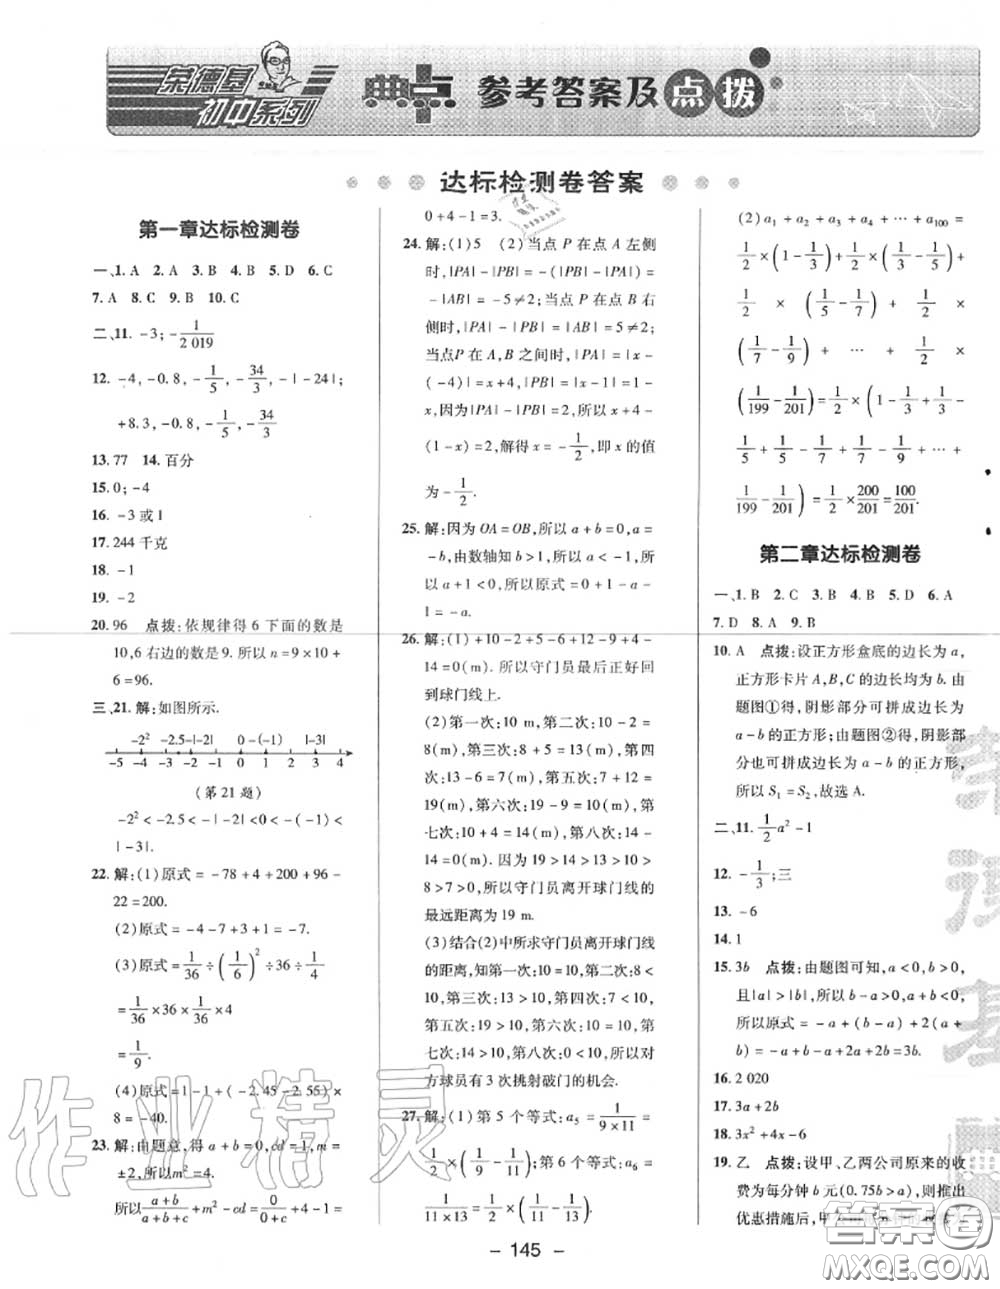 荣德基
初中系列
典点 参考答案及点拨
达标检测卷答案
第一章达标检测卷
一、1. A 2. A 3. B 4. B 5. D 6. C
7. A 8. C 9. B 10. C
二、11. -3; -1/2 019
12. -4, -0.8, -1/5, -34/3, -|-24|;
+8.3, -0.8, -1/5, -34/3
13. 77 14. 百分
15. 0; -4
16. -3 或1
17. 244 千克
18. -1
19. -2
20. 96 点拨:依规律得 6 下面的数是
10,6 右边的数是 9. 所以 n = 9×10+
6 = 96.
三、21. 解:如图所示.
-2² -2.5 -|-2| 0 -(-1) |-3|
-5 -4 -3 -2 -1 0 1 2 3 4
(第 21 题)
-2² < -2.5 < -|-2| < 0 < -(-1) <
|-3|.
22. 解:(1)原式 = -78+4+200+96-
22 = 200.
(2)原式 = -4-7+3+1 = -7.
(3)原式 = 1/36 ÷ (1/6)² ÷36÷ 1/4
= 1/36 ×36× 1/36 ×4
= 1/9.
(4)原式 = 1-1+(-2.45-2.55)×
8 = -40.
23. 解:由题意,得 a+b=0,cd=1,m=
±2,所以m²=4.
所以 (a+b)/(a+b+c) +m²-cd= 0/(0+c) +4-1=
0+4-1=3.
24. 解:(1)5 (2)当点 P 在点 A 左侧
时,|PA|-|PB| = -(|PB|-|PA|) =
-|AB| = -5≠2;当点 P 在点 B 右
侧时,|PA|-|PB| = |AB| = 5≠2;
当点P 在 A,B 之间时,|PA| = |x-
(-4)| = x+4,|PB| = |x-1| = 1-
x,因为|PA|-|PB|=2,所以 x+4-
(1-x)=2,解得 x = -1/2,即 x 的值
为 -1/2.
25. 解:因为 OA=OB,所以 a+b=0,a=
-b,由数轴知 b>1,所以 a<-1,所
以 a+1<0,所以原式=0-1-a+1=
-a.
26. 解:(1)+10-2+5-6+12-9+4-
14=0(m). 所以守门员最后正好回
到球门线上.
(2)第一次:10 m,第二次:10-2=
8(m),第三次:8+5=13(m),第四次:
13-6=7(m),第五次:7+12=
19(m),第六次:19-9=10(m),第
七次:10+4=14(m),第八次:14-
14=0(m). 因为 19>14>13>10>
8>7>0,所以守门员离开球门线的
最远距离为 19 m.
(3)结合(2)中所求守门员离开球门线的
距离,知第一次:10=10,第二次:8<
10,第三次:13>10,第四次:7<10,
第五次:19>10,第六次:10=10,第
七次:14>10,第八次:0<10,所以对
方球员有 3 次挑射破门的机会.
27. 解:(1)第 5 个等式:a₅= 1/(9×11) =
1/2 ×(1/9 - 1/11);第 6 个等式:a₆=
1/(11×13) = 1/2 ×(1/11 - 1/13)
(2) a₁+a₂+a₃+a₄+…+a₁₀₀=
1/2 ×(1- 1/3)+ 1/2 ×(1/3 - 1/5)+
1/2 × (1/5 - 1/7) + 1/2 ×
(1/7 - 1/9) + … + 1/2 ×
(1/199 - 1/201) = 1/2 ×(1- 1/3 + 1/3 -
1/5 + 1/5 - 1/7 + 1/7 - 1/9 +…+
1/199 - 1/201) = 1/2 × 200/201 = 100/201.
第二章达标检测卷
一、1. B 2. C 3. B 4. D 5. D 6. A
7. D 8. A 9. B
10. A 点拨:设正方形盒底的边长为 a,
正方形卡片 A,B,C 的边长均为 b. 由
题图①得,阴影部分可拼成边长为
a-b 的正方形;由题图②得,阴影部
分也可拼成边长为 a-b 的正方形,
所以 S₁=S₂,故选 A.
二、11. 1/2 a²-1
12. -1/3;三
13. -6
14. 1
15. 3b 点拨:由题图可知,a<0,b>0,
且|a|>|b|,所以 b-a>0,a+b<0,
所以原式 = -a+(b-a)+2(a+
b)= -a+b-a+2a+2b=3b.
16. 2 020
17. 3a+2b
18. 3x²+4x-6
19. 乙 点拨:设甲、乙两公司原来的收
费为每分钟 b 元(0.75b>a),则推出
优惠措施后,甲
- 145 -
作业精灵
荣德基
典
答案圈
MXQE.COM